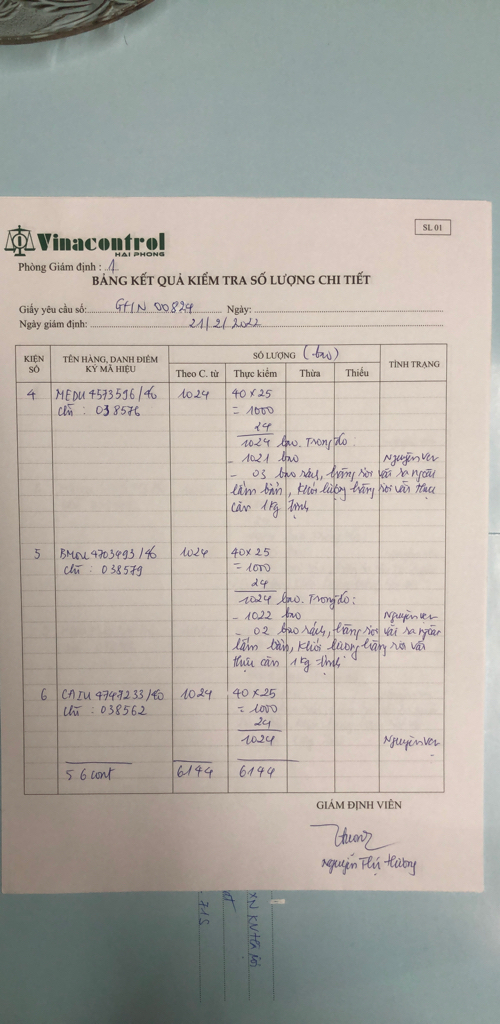 SL 01
Vinacontrol
HAI PHONG
Phòng Giám định : 1
BẢNG KẾT QUẢ KIỂM TRA SỐ LƯỢNG CHI TIẾT
Giấy yêu cầu số: GHN 00829 Ngày:
Ngày giám định: 21/2/2022
KIỆN SỐ TÊN HÀNG, DANH ĐIỂM KÝ MÃ HIỆU SỐ LƯỢNG (bao) TÌNH TRẠNG
Theo C. từ Thực kiểm Thừa Thiếu
4 MEDU 4573596/40 1024 40 x 25
chì : 038576 = 1000
24
1024 bao. Trong đó :
- 1021 bao Nguyên vẹn
- 03 bao rách, hàng rơi vãi ra ngoài
lấm bẩn, khối lượng hàng rơi vãi thực
cân 1kg tịnh
5 4703493/40 1024 40 x 25
chì : 038579 = 1000
24
1024 bao. Trong đó :
- 1022 bao Nguyên vẹn
- 02 bao rách, hàng rơi vãi ra ngoài
lấm bẩn, khối lượng hàng rơi vãi
thực cân 1kg tịnh
6 CAIU 4747233/40 1024 40 x 25
chì : 038562 = 1000
24
1024 Nguyên vẹn
6 cont 6144 6144
GIÁM ĐỊNH VIÊN
Nguyễn Thị Hường
715